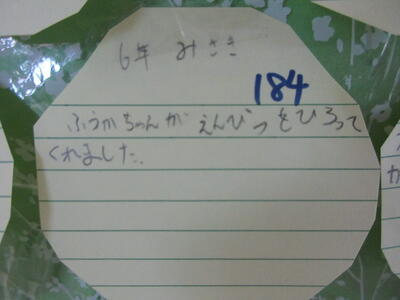 6年 みさき
184
ふうかちゃんが えんぴつをひろって
くれました。